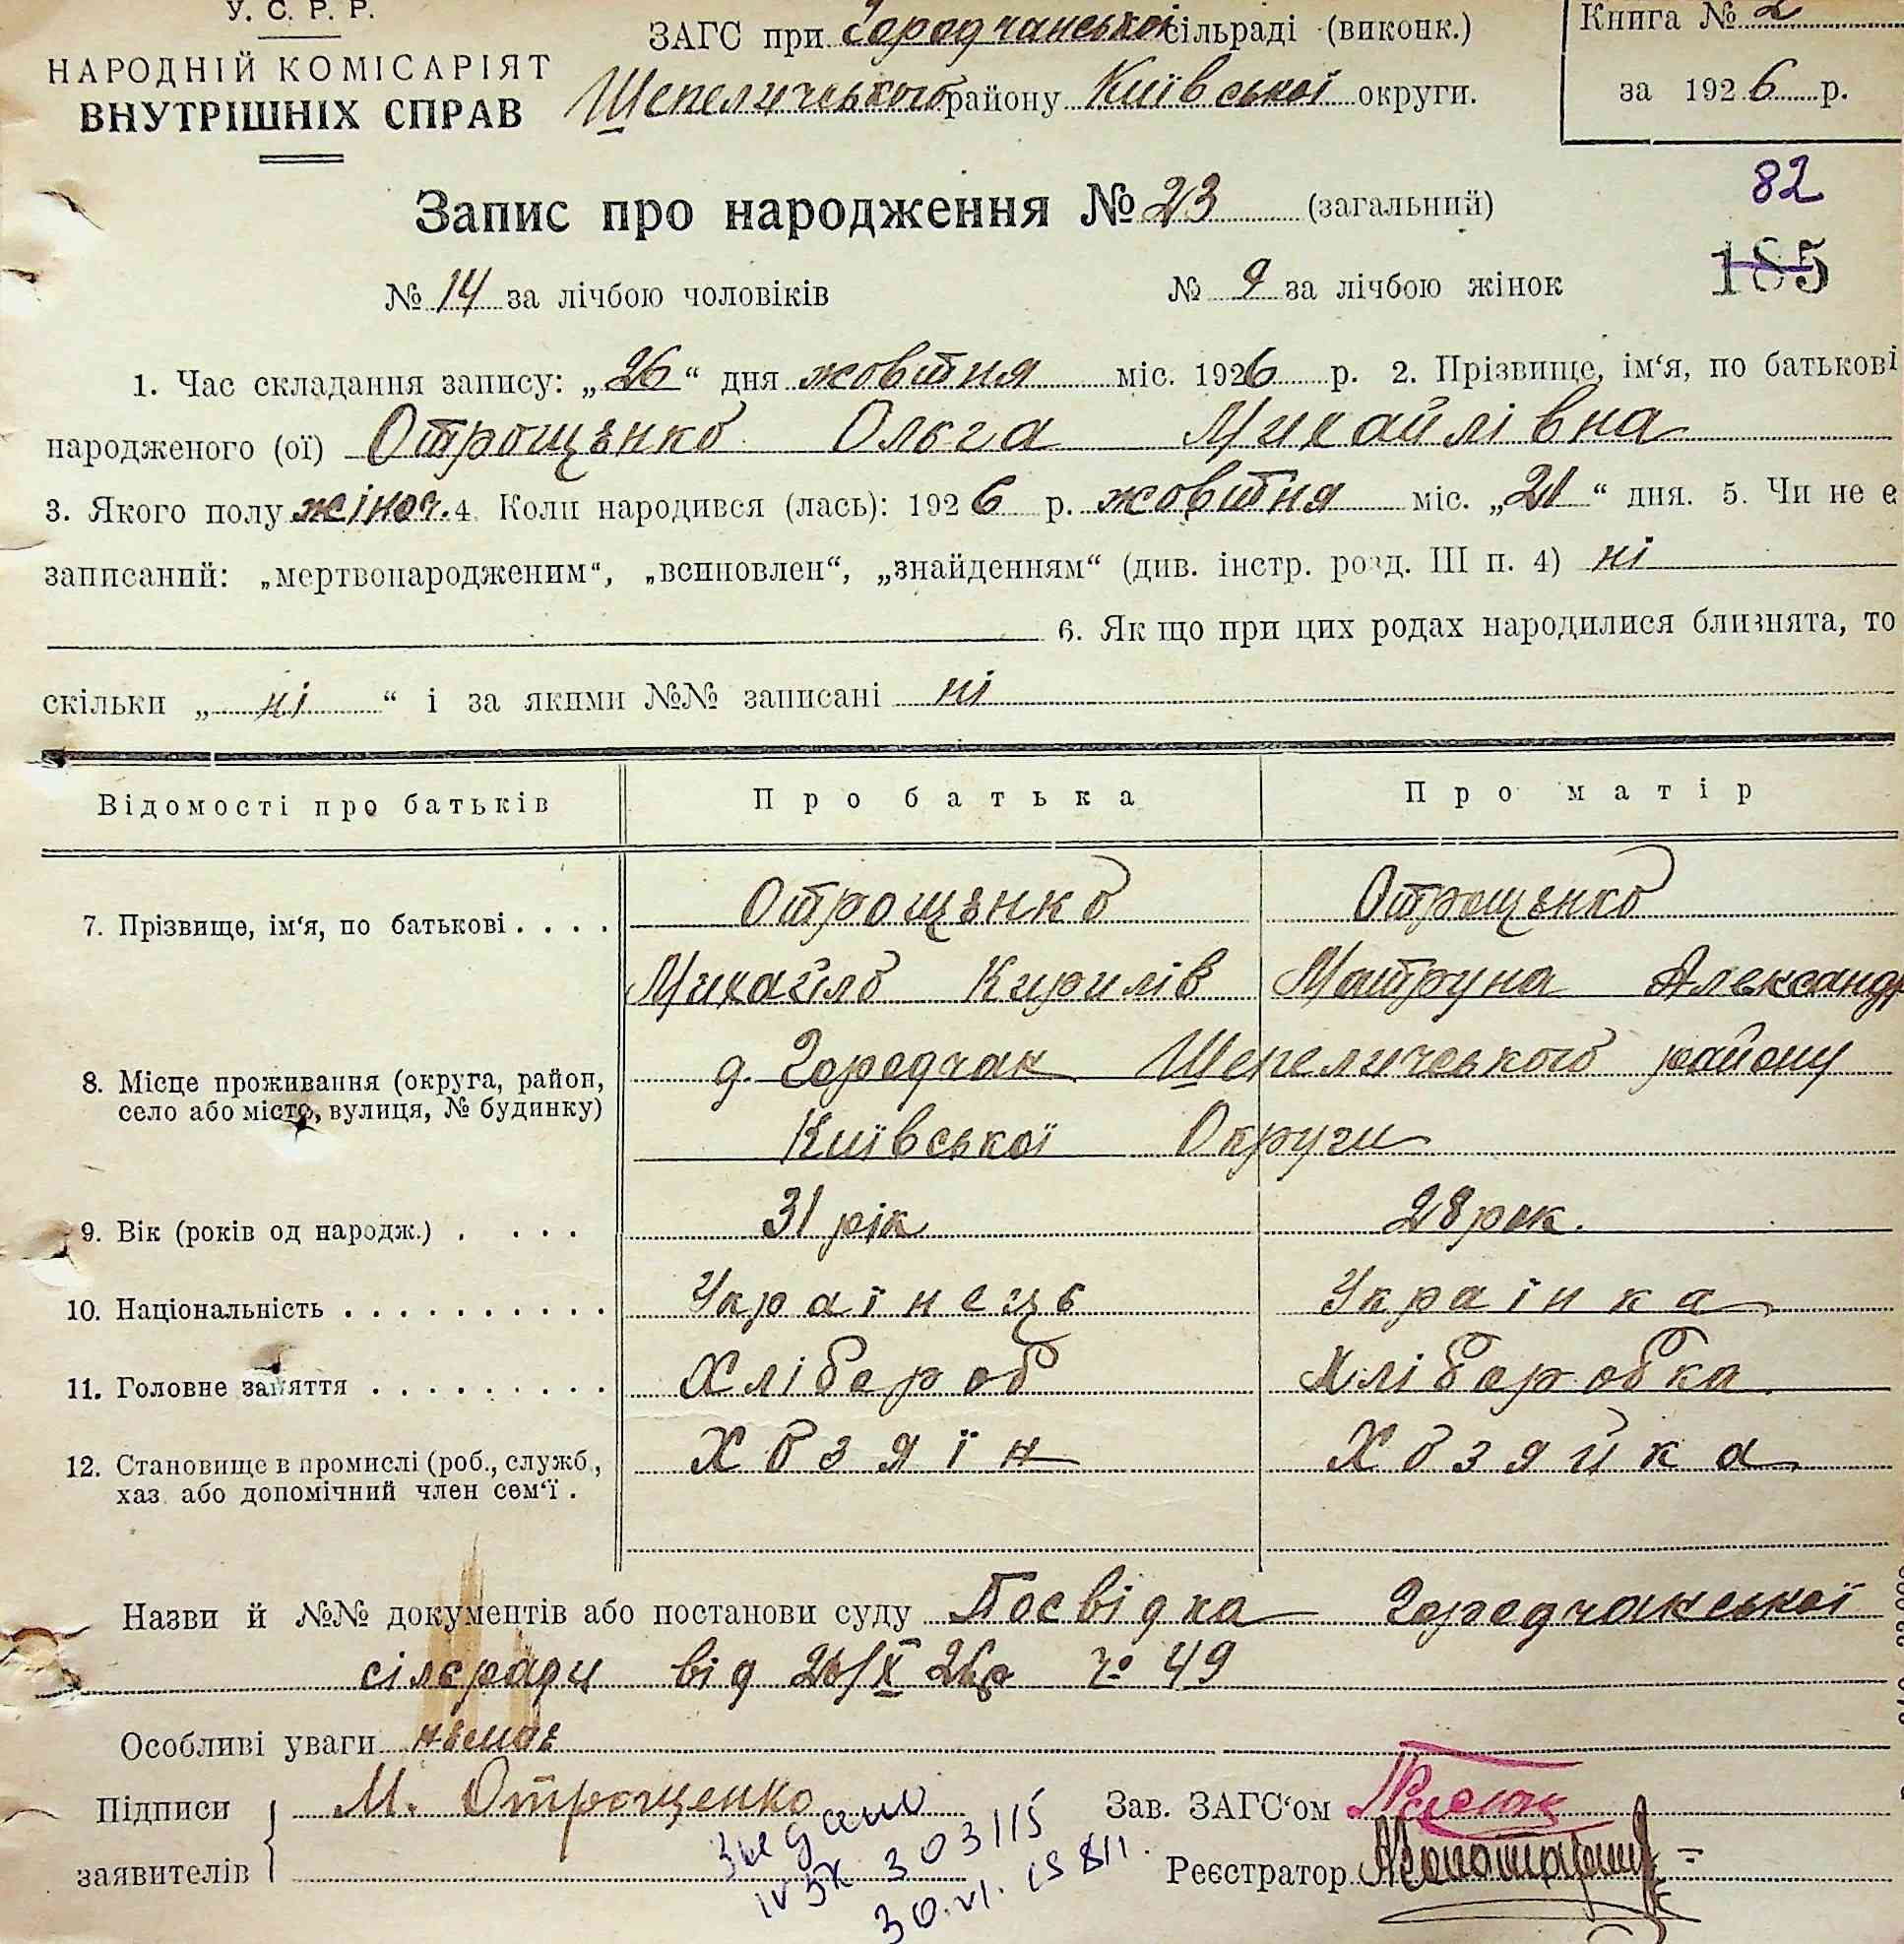 У. С. Р. Р.
НАРОДНІЙ КОМІСАРІЯТ
ВНУТРІШНІХ СПРАВ
ЗАГС при Городчанській сільраді (виконк.)
Шепеличського району Київської округи.
Книга № 2
за 1926 р.
82
185
Запис про народження № 23 (загальний)
№ 14 за лічбою чоловіків № 9 за лічбою жінок
1. Час складання запису: „26“ дня жовтня міс. 1926 р. 2. Прізвище, ім‘я, по батькові
народженого (ої) Отрощенко Ольга Михайлівна
3. Якого полу жіноч. 4. Коли народився (лась): 1926 р. жовтня міс. „21“ дня. 5. Чи не є
записаний: „мертвонародженим“, „всиновлен“, „знайденням“ (див. інстр. розд. III п. 4) ні
6. Як що при цих родах народилися близнята, то
скільки „ні“ і за якими №№ записані ні
Відомості про батьків Про батька Про матір
7. Прізвище, ім‘я, по батькові . . . . Отрощенко Отрощенко
Михайло Кирилів Матруна Александр
8. Місце проживання (округа, район,
село або місто, вулиця, № будинку)
д. Городчак Шепеличського району
Київської Округи
9. Вік (років од народж.) . . . . 31 рік 28 рок.
10. Національність . . . . . . . . . . Українець Українка
11. Головне заняття . . . . . . . . . Хлібороб Хліборобка
12. Становище в промислі (роб., служб.,
хаз. або допомічний член сем‘ї .
Хозяїн Хозяйка
Назви й №№ документів або постанови суду Посвідка Городчанської
сільради від 26/X 26р № 49
Особливі уваги немає
Підписи
заявителів
М. Отрощенко
Зав. ЗАГС‘ом
Реєстратор
303115
30.VI.